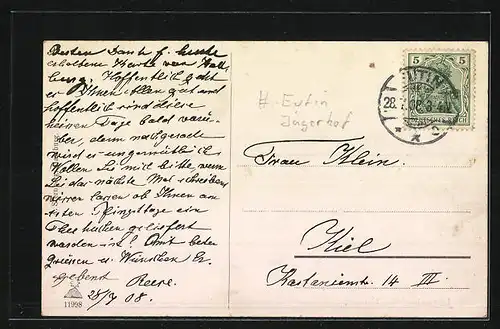 Besten Dank f. Ihre
erhaltene Karte von
burg. Hoffentlich geht
es Ihnen allen gut und
hoffentlich sind diese
heissen Tage bald vorü-
ber, denn nachgerade
wird es ungemütlich
Wollen Sie mir bitte, wenn
Sie das nächste Mal schreiben
wissen lassen ob Ihnen am
ersten Pfingsttage ein
Theekuchen geliefert
worden ist? Mit besten
Grüssen u. Wünschen Ihr
ergebenst
Reese.
25/7 08.
11998
# Eutin
Jägerhof
5 5
EUTIN
28.
Frau Klein.
Kiel
Kastanienstr. 14 III.